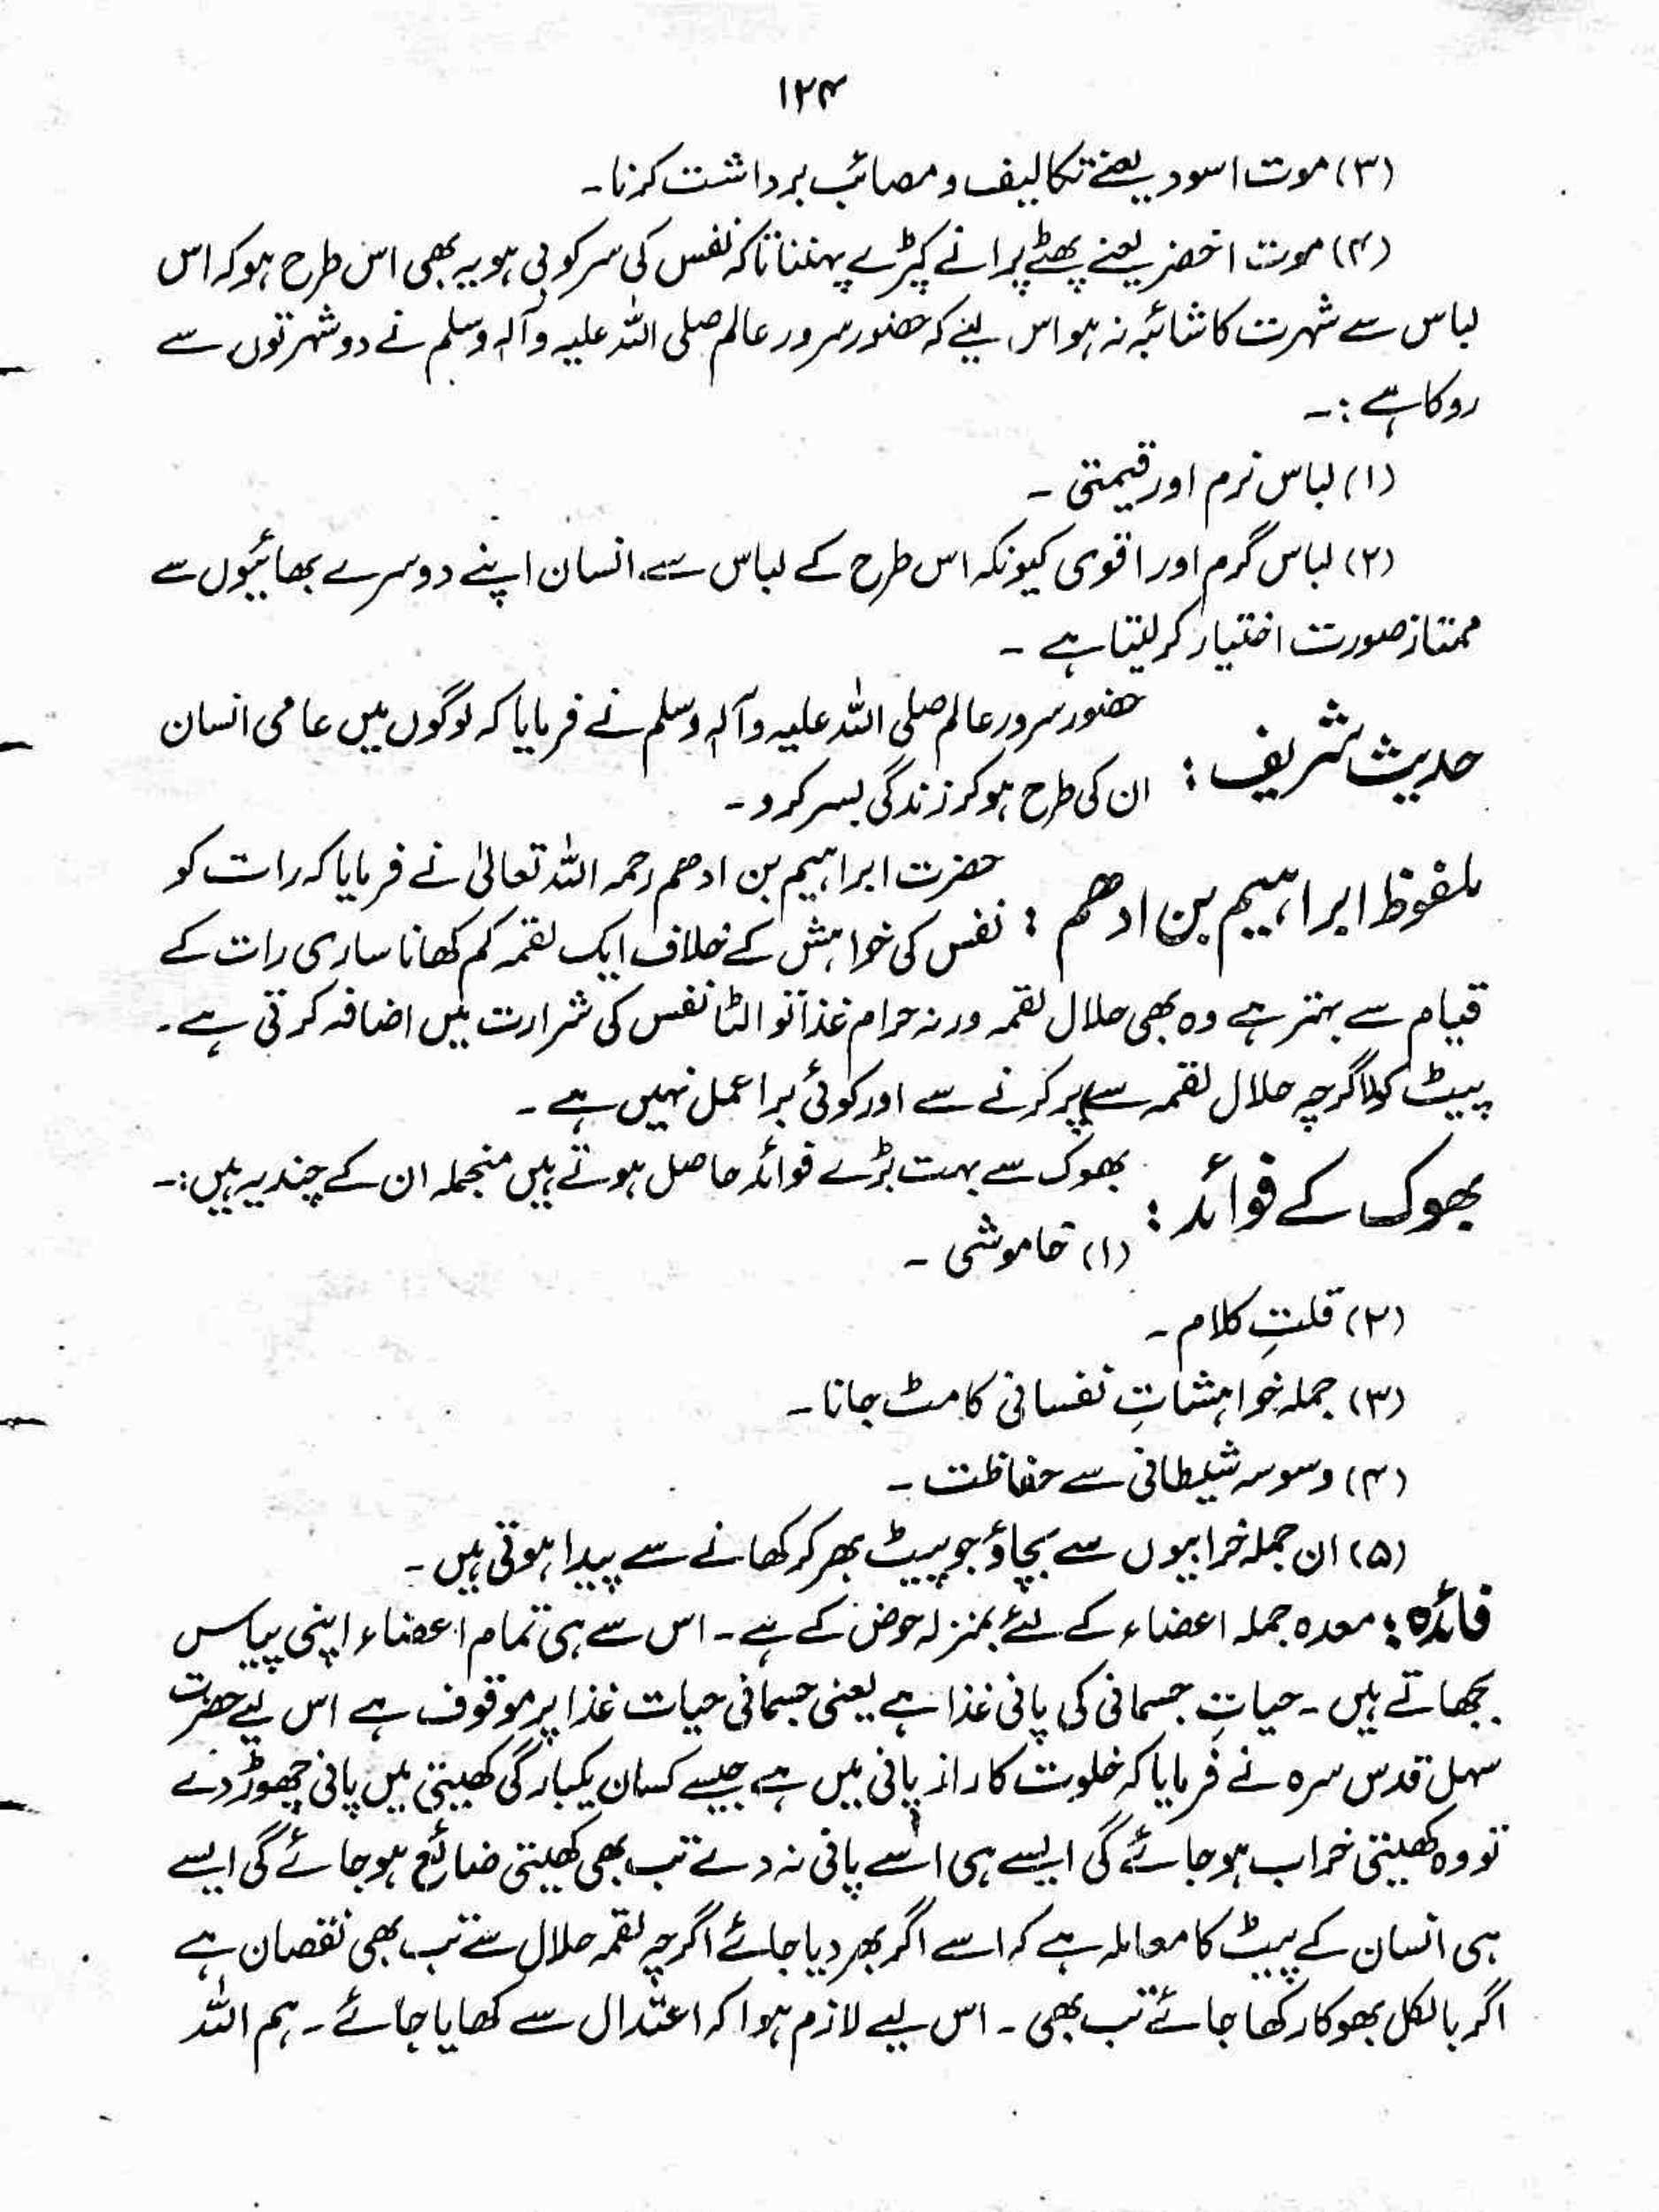 ۱۲۴
(۳) موت اسود یعنے تکالیف و مصائب برداشت کرنا۔
(۴) موت اخضر یعنے پھٹے پرانے کپڑے پہننا تاکہ نفس کی سرکوبی ہو یہ بھی اس طرح ہو کہ اس
لباس سے شہرت کا شائبہ نہ ہو اس لیے کہ حضور سرور عالم صلی اللہ علیہ وآلہٖ وسلم نے دو شہرتوں سے
روکا ہے :۔
(۱) لباس نرم اور قیمتی ۔
(۲) لباس گرم اور اقوی کیونکہ اس طرح کے لباس سے انسان اپنے دوسرے بھائیوں سے
ممتاز صورت اختیار کرلیتا ہے ۔
حدیث شریف : حضور سرور عالم صلی اللہ علیہ وآلہٖ وسلم نے فرمایا کہ لوگوں میں عامی انسان
ان کی طرح ہو کر زندگی بسر کرو ۔
ملفوظ ابراہیم بن ادھم : حضرت ابراہیم بن ادھم رحمہ اللہ تعالیٰ نے فرمایا کہ رات کو
نفس کی خواہش کے خلاف ایک لقمہ کم کھانا ساری رات کے
قیام سے بہتر ہے وہ بھی حلال لقمہ ورنہ حرام غذا تو الٹا نفس کی شرارت میں اضافہ کرتی ہے ۔
پیٹ کو اگرچہ حلال لقمہ سے پر کرنے سے اور کوئی برا عمل نہیں ہے ۔
بھوک کے فوائد : بھوک سے بہت بڑے فوائد حاصل ہوتے ہیں منجملہ ان کے چند یہ ہیں :۔
(۱) خاموشی ۔
(۲) قلتِ کلام ۔
(۳) جملہ خواہشاتِ نفسانی کا مٹ جانا ۔
(۴) وسوسہ شیطانی سے حفاظت ۔
(۵) ان جملہ خرابیوں سے بچاؤ جو پیٹ بھر کر کھانے سے پیدا ہوتی ہیں ۔
فائدہ : معدہ جملہ اعضاء کے لئے بمنزلہ حوض کے ہے ۔ اس سے ہی تمام اعضاء اپنی پیاس
بجھاتے ہیں ۔ حیاتِ جسمانی کی پانی غذا ہے یعنی جسمانی حیات غذا پر موقوف ہے اس لیے حضرت
سہل قدس سرہ نے فرمایا کہ خلوت کا راز پانی میں ہے جیسے کسان یکبارگی کھیتی میں پانی چھوڑ دے
تو وہ کھیتی خراب ہو جائے گی ایسے ہی اسے پانی نہ دے تب بھی کھیتی ضائع ہو جائے گی ایسے
ہی انسان کے پیٹ کا معاملہ ہے کہ اسے اگر بھر دیا جائے اگرچہ لقمہ حلال سے تب بھی نقصان ہے
اگر بالکل بھوکا رکھا جائے تب بھی ۔ اس لیے لازم ہوا کہ اعتدال سے کھایا جائے ۔ ہم اللہ